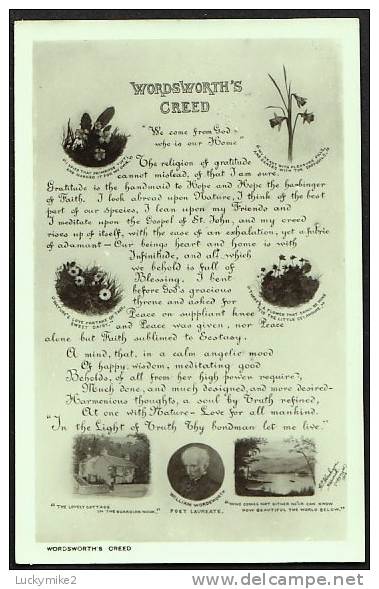 WORDSWORTH'S
CREED
"We come from God -
who is our Home"
The religion of gratitude
cannot mislead, of that I am sure.
Gratitude is the handmaid to Hope and Hope the harbinger
of Faith. I look abroad upon Nature, I think of the best
part of our species, I lean upon my Friends and
I meditate upon the Gospel of St. John, and my creed
rises up of itself, with the ease of an exhalation, yet a fabric
of adamant - Our beings heart and home is with
Infinitude, and all which
we behold is full of
Blessing. I bent
before God's gracious
throne and asked for
Peace on suppliant knee
and Peace was given, nor Peace
alone but Faith sublimed to Ecstasy.
A mind, that, in a calm angelic mood
Of happy wisdom, meditating good
Beholds, of all from her high power required,
Much done, and much designed, and more desired-
Harmonious thoughts, a soul by Truth refined,
At one with Nature - Love for all mankind.
"In the Light of Truth Thy bondman let me live."
"THE LOVELY COTTAGE
IN THE GUARDIAN NOOK."
WILLIAM WORDSWORTH
POET LAUREATE.
"WHO COMES NOT HITHER NE'ER CAN KNOW
HOW BEAUTIFUL THE WORLD BELOW."
WORDSWORTH'S CREED
Luckymike2
http://www.delcampe.net